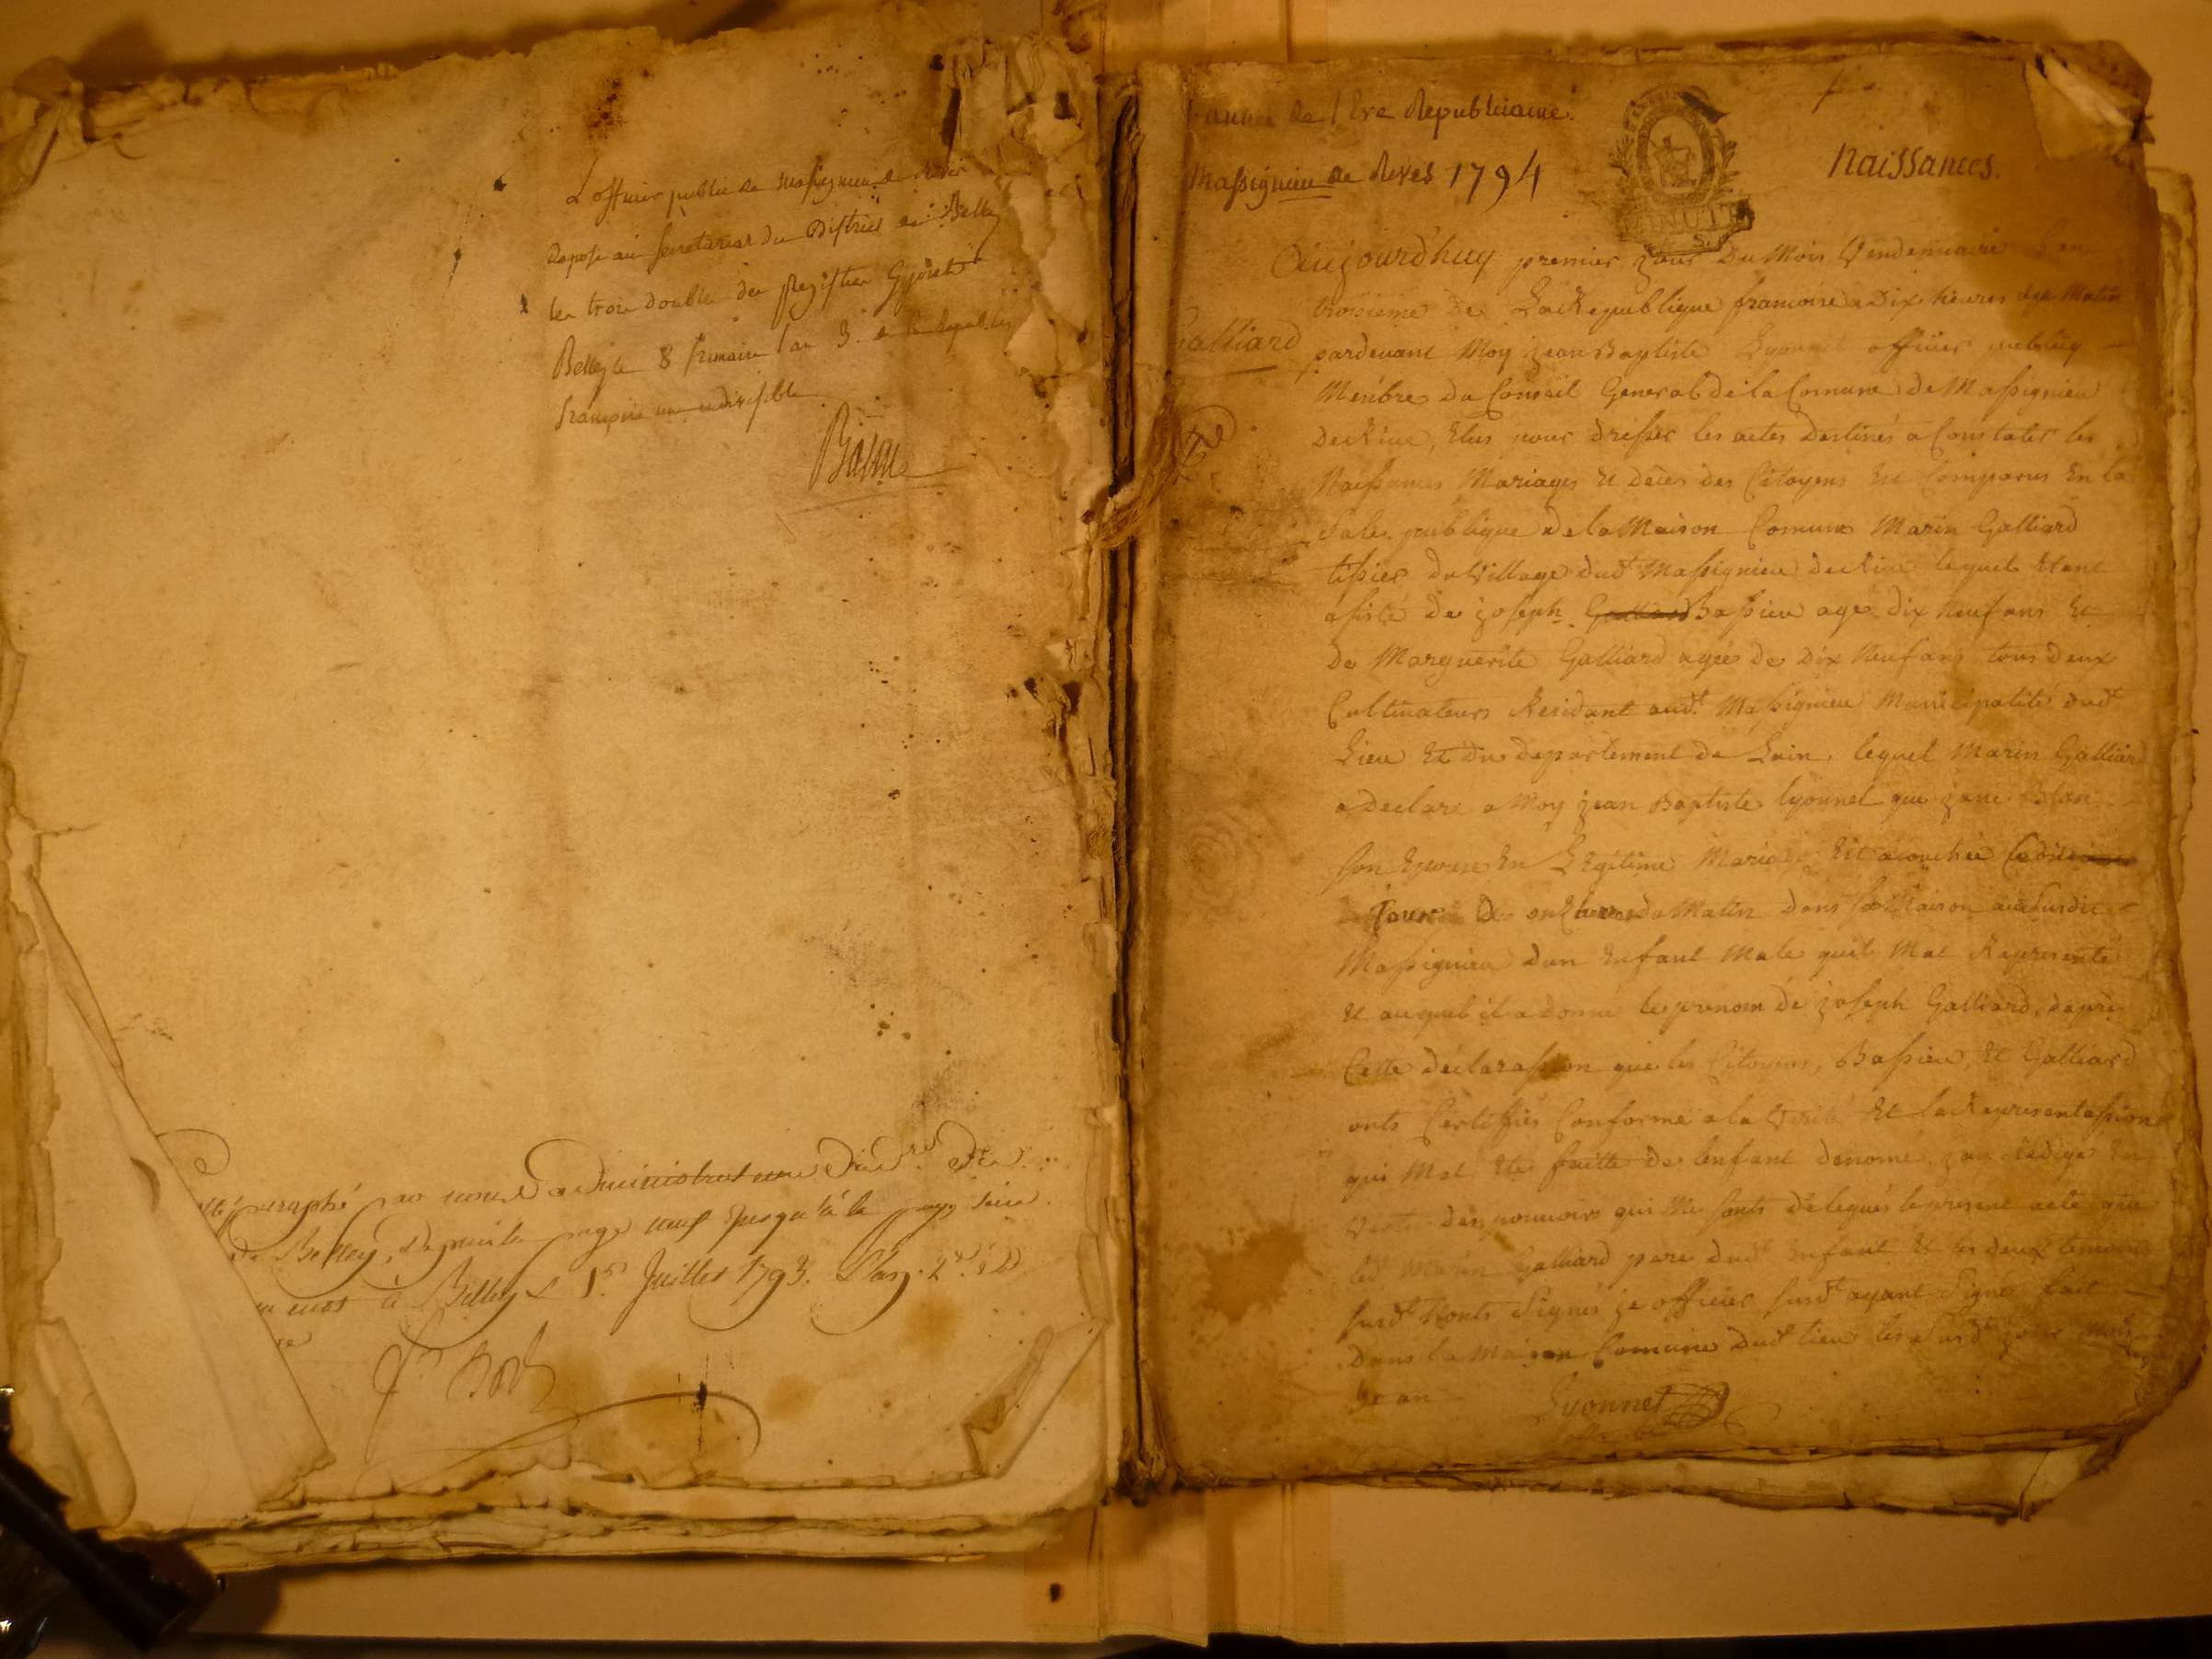 L'officier public de Massignieu de Rives
depose au secretariat du District de Belley
les trois doubles des Registres
Belley le 8 frimaire l'an 3. de la Republique
françoise une indivisible
paraphé par nous administrateur
de Belley, depuis la page neuf jusqu'à la page
à Belley le 1er Juillet 1793. L'an 2
année de l'Ere Republicaine.
Massignieu de Rives 1794
Naissances.
MINUTE
Galliard
Aujourd'huy premier jour du Mois Vendemiaire L'an
troisieme de La Republique francoise a Dix heures du Matin
pardevant Moy jean Baptiste Lyonnet officier publicq
Menbre du Conseil General de la Comune de Massignieu
de Rive, Elus pour dresser les actes destinés a Constater les
Naissances Mariages et decès des Citoyens Est Comparus En la
Sale publique de la Maison Comune Marin Galliard
tissier du Village dud.t Massignieu de Rive lequel Etant
assisté de joseph Galliard Bassieu age dix Neuf ans Et
de Marguerite Galliard agée de Dix Neuf ans tous deux
Cultivateurs Residant aud.t Massignieu Municipalité dud.t
Lieu Et du departement de Lain, lequel Marin Galliard
a declaré a Moy jean Baptiste lyonnet que jane
son Epouse En Legitime Mariage Est acouchée
jour du Matin dans sa Maison au Susdit
Massignieu d'un Enfant Male quil Mat Representé
Et auquel il a donné le prenom de joseph Galliard, dapré
Cette déclarassion que les Citoyens, Bassieu, Et Galliard
onts Certiffiés Conforme a la Verité Et la Representassion
qui Mat Eté faitte de lenfant denomé, jay Redigé En
Vertu des pouvoirs qui Me sonts délegués le present acte que
led.t Marin Galliard pere dud.t Enfant Et les deux temoins
susd.t Nonts Signés je officier susd.t ayant Signé fait
dans la Maison Comune dud.t lieu les susd.t jour Mois
Et an
Lyonnet